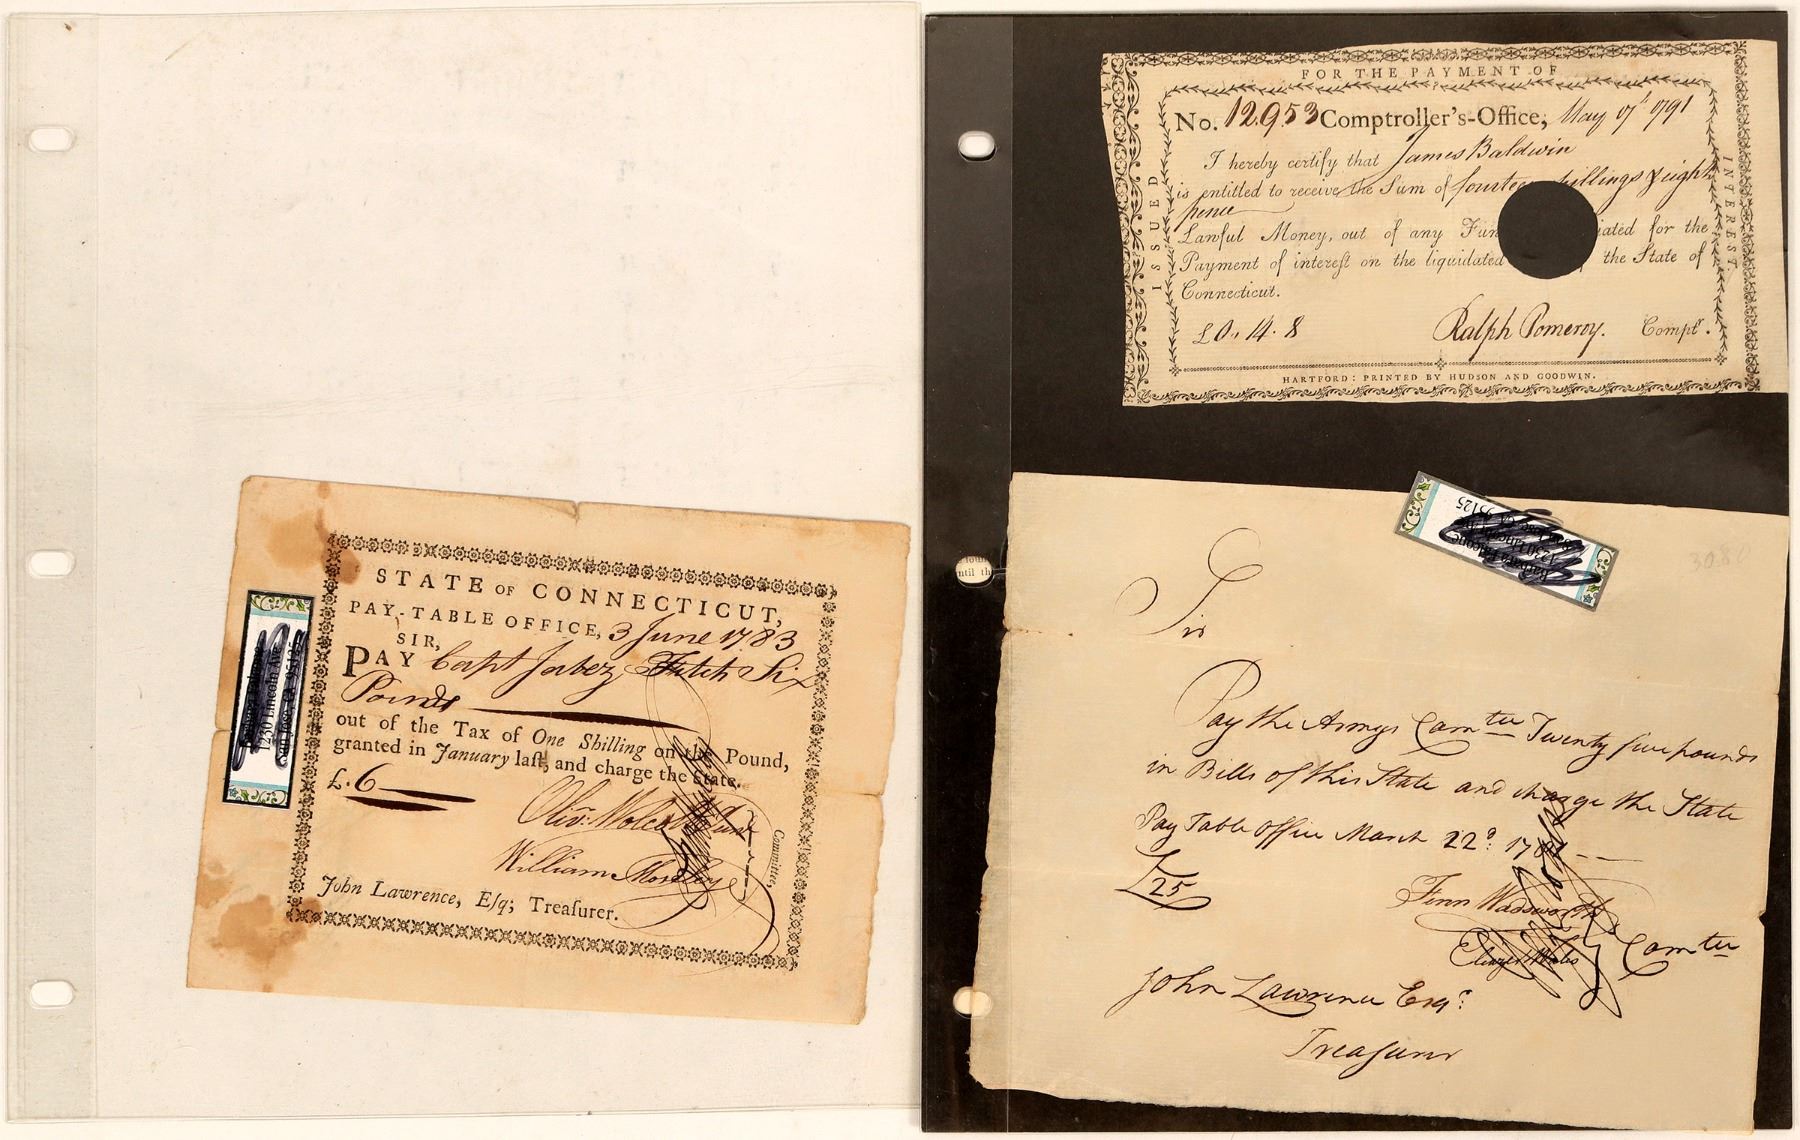 STATE OF CONNECTICUT,
PAY-TABLE OFFICE, 3 June 1783
SIR,
PAY Capt Jabez Fitch Six
Pounds
out of the Tax of One Shilling on the Pound,
granted in January laſt, and charge the State.
£. 6
Olivr. Wolcott Junr
William Moseley
Committee,
John Lawrence, Eſq; Treaſurer.
1230 Lincoln Ave
San Jose, CA 95125
FOR THE PAYMENT OF
ISSUED
INTEREST.
No. 12.953 Comptroller's-Office, May 17th 1791
I hereby certify that James Baldwin
is entitled to receive the Sum of fourteen shillings & eight
pence
Lawful Money, out of any Fun iated for the
Payment of intereſt on the liquidated the State of
Connecticut.
£0. 14. 8 Ralph Pomeroy. Comptr.
HARTFORD: PRINTED BY HUDSON AND GOODWIN.
95125
30.80
ntil th
Sir
Pay the Armys Comtee Twenty five pounds
in Bills of this State and charge the State
Pay Table Office March 22d. 178
£25
Fenn Wadsworth
Eleazer Wales Comtee
John Lawrence Esqr.
Treasurer